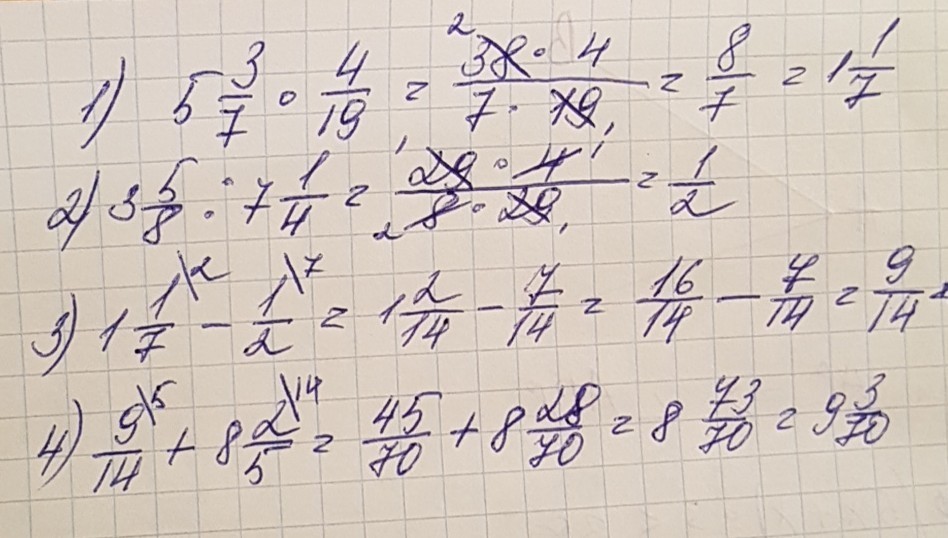 1) 5 3/7 · 4/19 = 38 · 4 / 7 · 19 = 8/7 = 1 1/7
2) 3 5/8 : 7 1/4 = 29 · 4 / 8 · 29 = 1/2
3) 1 1/7 \2 - 1/2 \7 = 1 2/14 - 7/14 = 16/14 - 7/14 = 9/14
4) 9/14 \5 + 8 2/5 \14 = 45/70 + 8 28/70 = 8 73/70 = 9 3/70